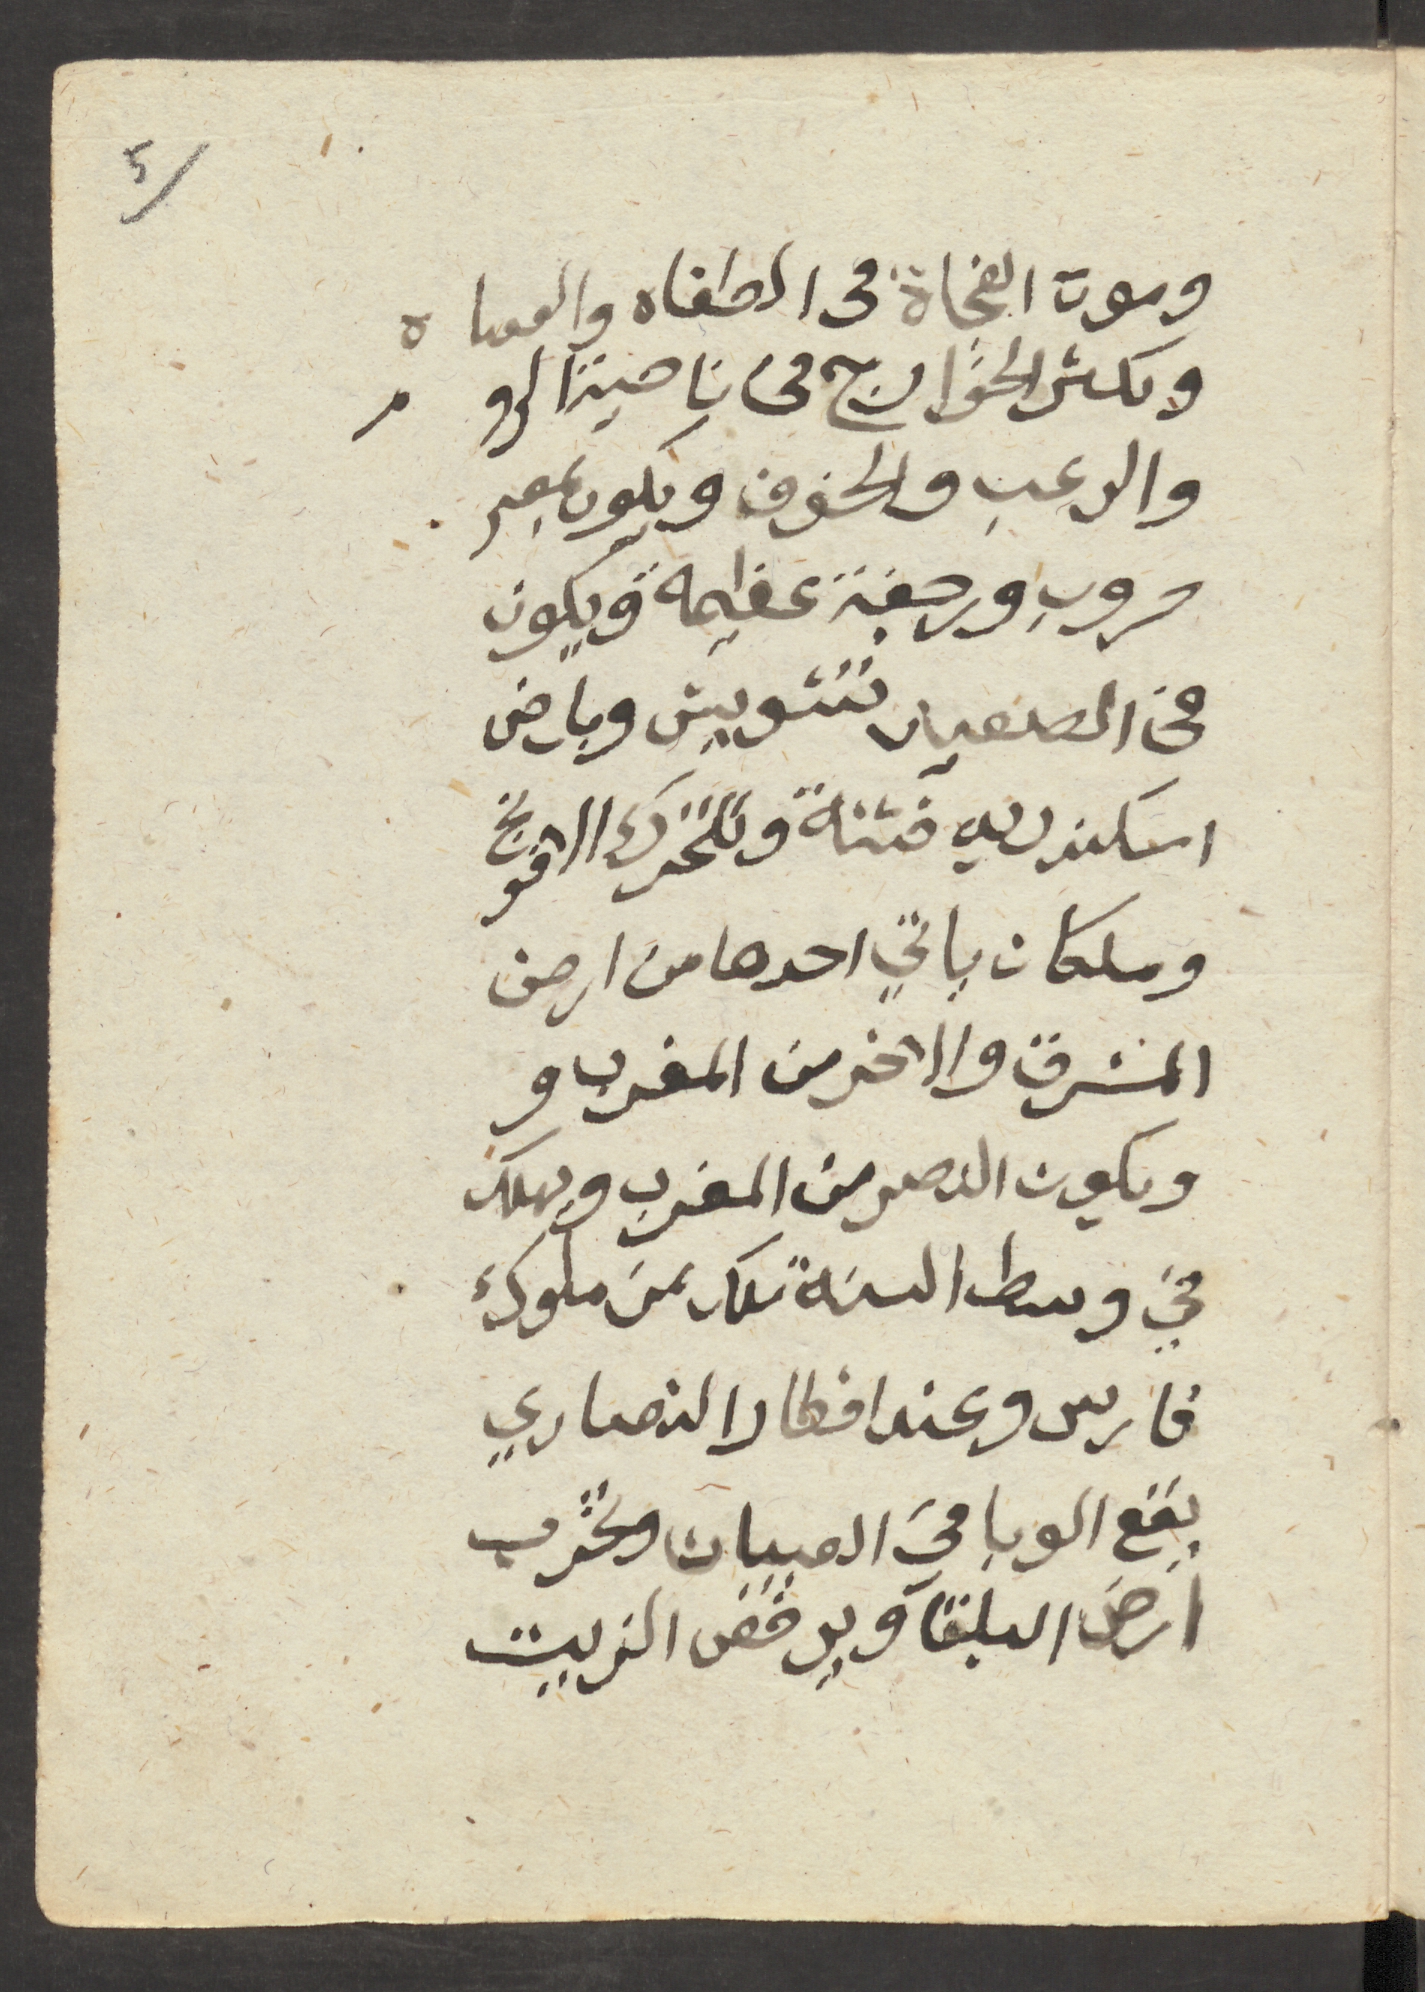 ٥
وموت الفجاة فى الطغاه والعصاه
ويكثر الخوارج فى ناحية الروم
والرعب والخوف ويكون بمصر
حروب ورجفة عظيمة ويكون
فى الصعيد تشويش وبارض
اسكندريه فتنة وتتحرك الافرنج
وملكان ياتي احدها من ارض
المشرق والاخر من المغرب و
ويكون النصر من المغرب ويهلك
في وسط السنة ملك من ملوك
فارس وعند افطار النصاري
يقع الوبا في الصبيان وتخرب
ارض البلقا ويرخص الزيت